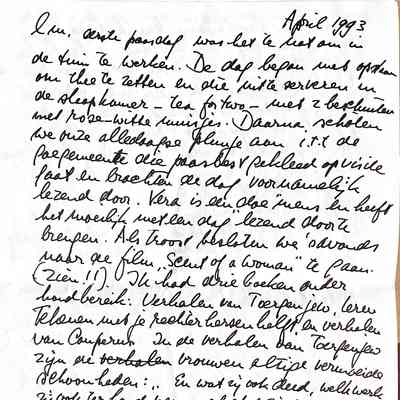 April 1993
Lm, eerste paasdag was het te nat om in
de tuin te werken. De dag begon met opstaan
om thee te zetten en die witte serveren in
de slaapkamer - tea for two - met 2 beschuiten
met rose-witte muisjes. Daarna schoten
we onze alledaagse plunje aan i.t.t. de
goegemeente die paasbest gekleed op visite
gaat en brachten de dag voornamelijk
lezend door. Vera is een "doe" mens en heeft
het moeilijk met een dag "lezend" door te
brengen. Als troost besloten we 's avonds
naar de film "Scent of a woman" te gaan.
(zien!!). Ik had drie boeken onder
handbereik: Verhalen van Toergenjew, leren
Tekenen met je rechter hersenhelft en verhalen
van Couperus. In de verhalen van Toergenjew
zijn de verhalen vrouwen altijd vermoeide
schoonheden: ,, En wat zij ook deed, welk werk
zij ook ter hand